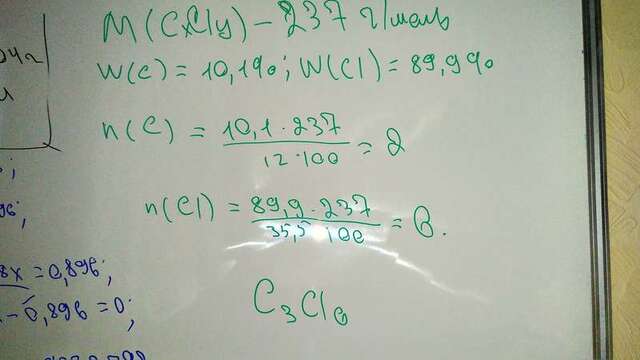 M(CxCly) - 237 г/моль
W(C) = 10,1%; W(Cl) = 89,9%
n(C) = 10,1 · 237 / 12 · 100 = 2
n(Cl) = 89,9 · 237 / 35,5 · 100 = 6.
C3Cl6
8x = 0,896;
- 0,896 = 0;